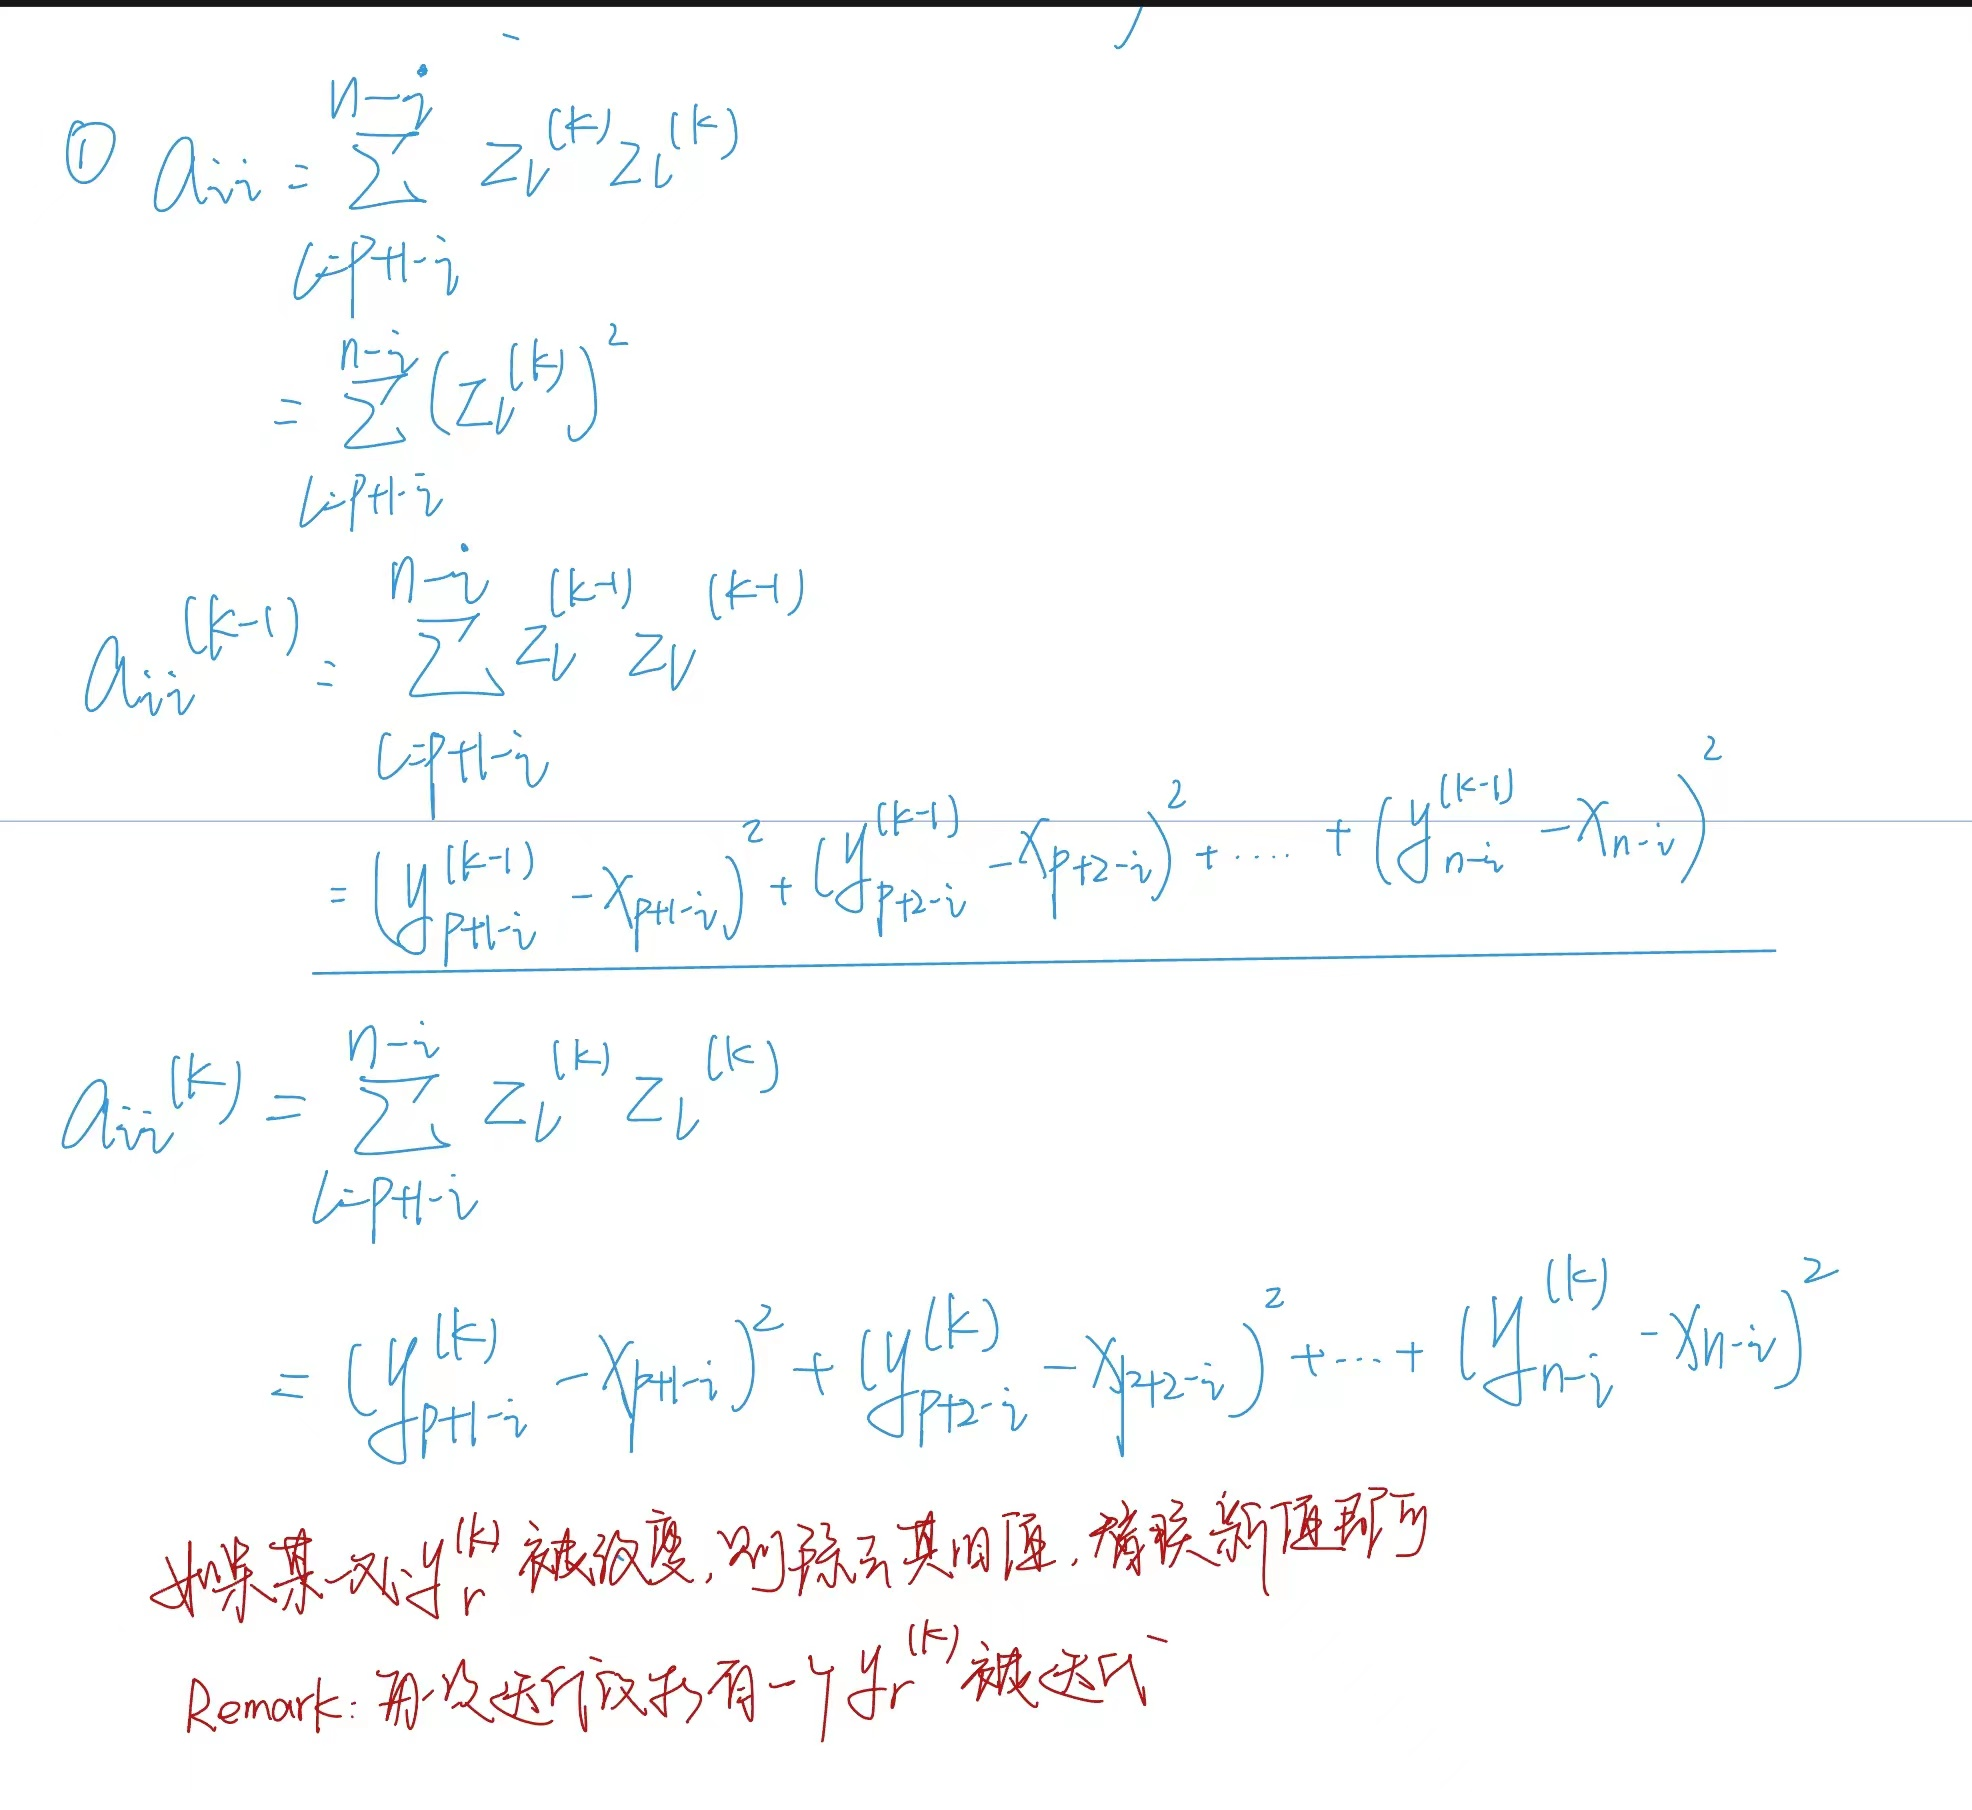 ① a_{ii} = \sum_{l=p+1-i}^{n-i} z_l^{(k)} z_l^{(k)}
= \sum_{l=p+1-i}^{n-i} (z_l^{(k)})^2
a_{ii}^{(k-1)} = \sum_{l=p+1-i}^{n-i} z_l^{(k-1)} z_l^{(k-1)}
= (y_{p+1-i}^{(k-1)} - x_{p+1-i})^2 + (y_{p+2-i}^{(k-1)} - x_{p+2-i})^2 + ..... + (y_{n-i}^{(k-1)} - x_{n-i})^2
a_{ii}^{(k)} = \sum_{l=p+1-i}^{n-i} z_l^{(k)} z_l^{(k)}
= (y_{p+1-i}^{(k)} - x_{p+1-i})^2 + (y_{p+2-i}^{(k)} - x_{p+2-i})^2 + ... + (y_{n-i}^{(k)} - x_{n-i})^2
如果某一次 y_r^{(k)} 被, 则其旧值, 替换新值即可
Remark: 有一个 y_r^{(k)} 被迭代